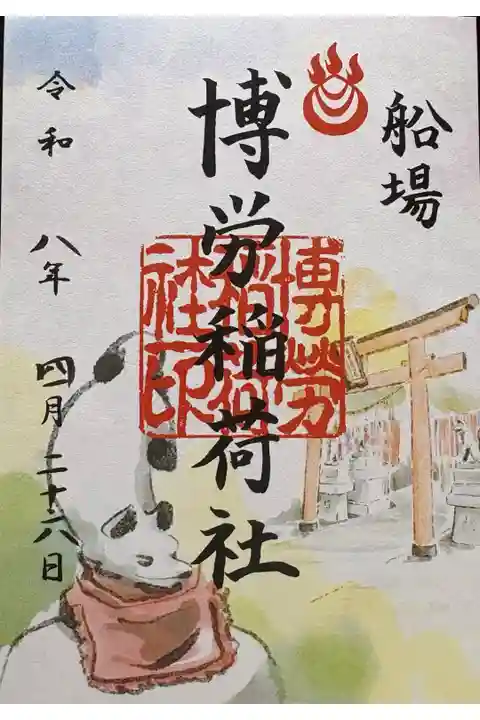 船場
博労稲荷社
博勞稲荷社印
令和 八年 四月二十六日